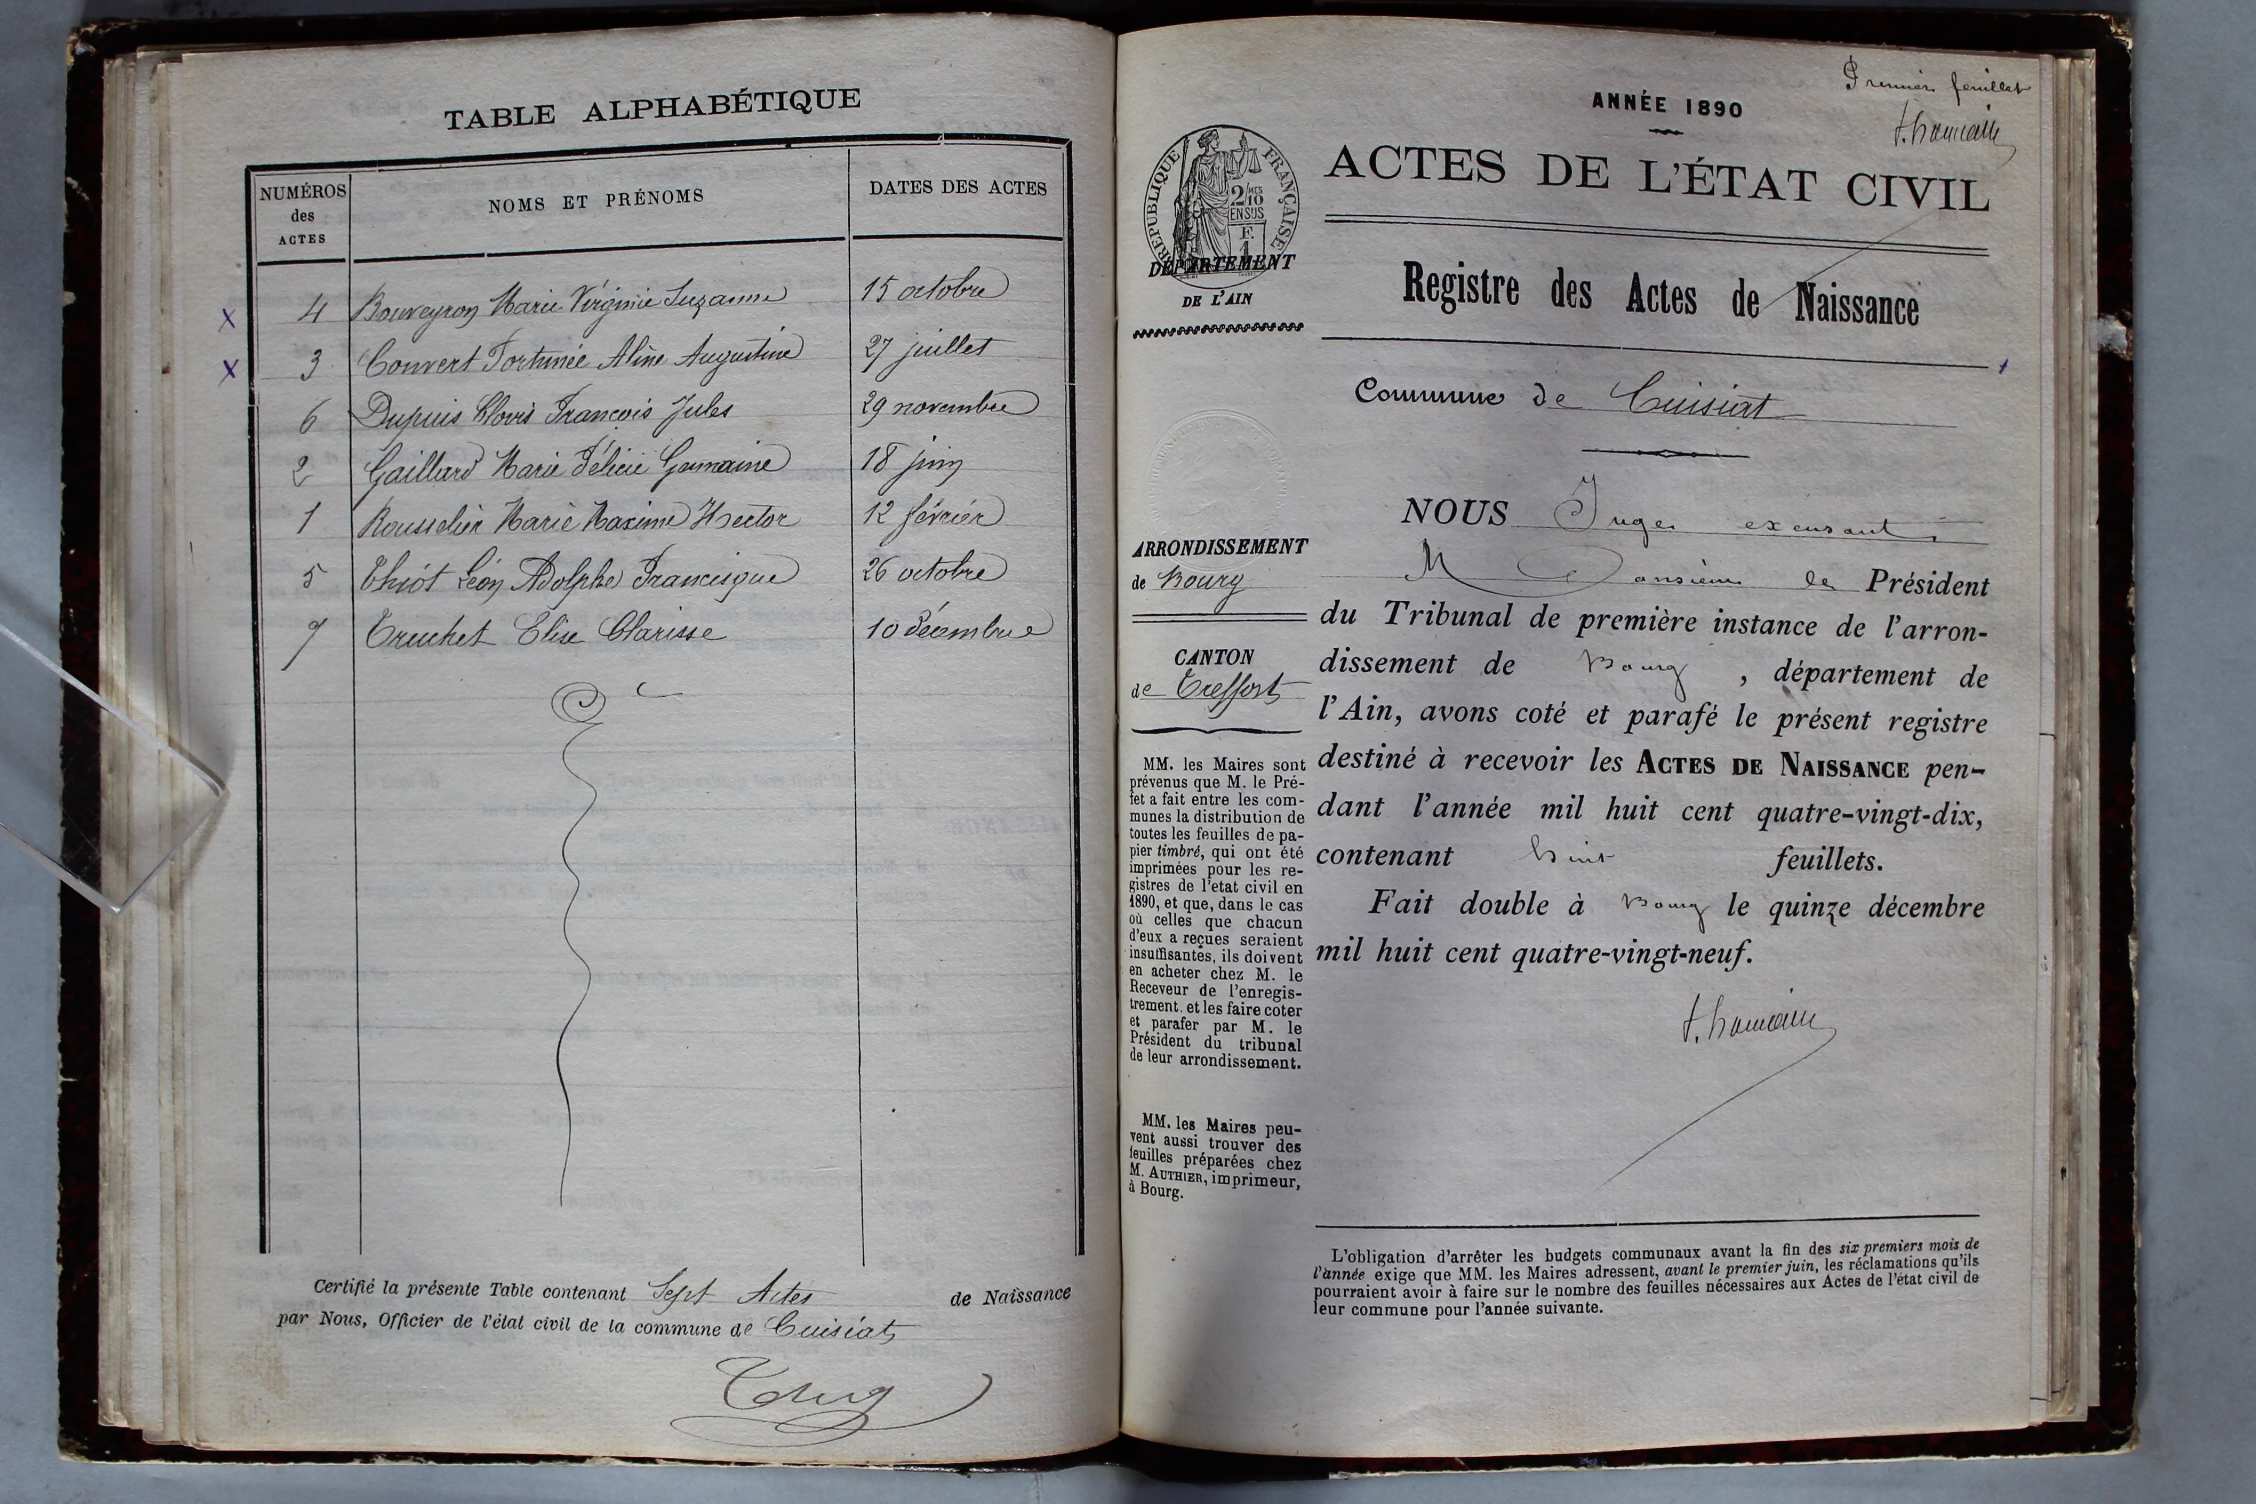 TABLE ALPHABÉTIQUE
NUMÉROS des ACTES
NOMS ET PRÉNOMS
DATES DES ACTES
X 4 Bouveyron Marie Virginie Suzanne 15 octobre
X 3 Convert Fortunée Aline Augustine 27 juillet
6 Dupuis Clovis François Jules 29 novembre
2 Gaillard Marie Félicie Germaine 18 juin
1 Rousselier Marie Maxime Hector 12 février
5 Thiot Léon Adolphe Francisque 26 octobre
7 Truchet Elise Clarisse 10 décembre
Certifié la présente Table contenant Sept Actes de Naissance
par Nous, Officier de l'état civil de la commune de Cuisiat
Premier feuillet
ANNÉE 1890
ACTES DE L'ÉTAT CIVIL
RÉPUBLIQUE FRANÇAISE
2/10
EN SUS
DÉPARTEMENT
DE L'AIN
Registre des Actes de Naissance
Commune de Cuisiat
ARRONDISSEMENT
de Bourg
CANTON
de Treffort
MM. les Maires sont
prévenus que M. le Pré-
fet a fait entre les com-
munes la distribution de
toutes les feuilles de pa-
pier timbré, qui ont été
imprimées pour les re-
gistres de l'etat civil en
1890, et que, dans le cas
où celles que chacun
d'eux a reçues seraient
insuffisantes, ils doivent
en acheter chez M. le
Receveur de l'enregis-
trement, et les faire coter
et parafer par M. le
Président du tribunal
de leur arrondissement.
MM. les Maires peu-
vent aussi trouver des
feuilles préparées chez
M. AUTHIER, imprimeur,
à Bourg.
NOUS Juge excusant
M le Président
du Tribunal de première instance de l'arron-
dissement de Bourg, département de
l'Ain, avons coté et parafé le présent registre
destiné à recevoir les ACTES DE NAISSANCE pen-
dant l'année mil huit cent quatre-vingt-dix,
contenant huit feuillets.
Fait double à Bourg le quinze décembre
mil huit cent quatre-vingt-neuf.
L'obligation d'arrêter les budgets communaux avant la fin des six premiers mois de
l'année exige que MM. les Maires adressent, avant le premier juin, les réclamations qu'ils
pourraient avoir à faire sur le nombre des feuilles nécessaires aux Actes de l'état civil de
leur commune pour l'année suivante.